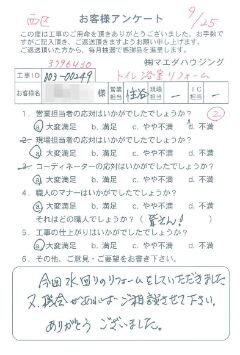 西区
お客様アンケート
9/25
この度は工事のご用命を頂きありがとうございました。お手数で
すがご記入頂き、ご返送頂きますようお願い申し上げます。
ご返送頂いた方から、毎月抽選で感謝品を進呈します。
3396430
㈱マエダハウジング
工事ID 003-00249 トイレ浴室リフォーム
お客様名 様 営業担当 住谷 現場担当 ー IC担当 ー
1. 営業担当者の応対はいかがでしたでしょうか? ②
a 大変満足 b. 満足 c. やや不満 d. 不満
2. 現場担当者の応対はいかがでしたでしょうか?
a 大変満足 b. 満足 c. やや不満 d. 不満
3. コーディネーターの応対はいかがでしたでしょうか?
a. 大変満足 b. 満足 c. やや不満 d. 不満
4. 職人のマナーはいかがでしたでしょうか?
a 大変満足 b. 満足 c. やや不満 d. 不満
それはどの職人でしょうか? ( 皆さん! )
5. 工事の仕上がりはいかがでしたでしょうか?
a 大変満足 b. 満足 c. やや不満 d. 不満
6. その他、ご意見・ご要望をお書き下さい。
今回水回りのリフォームをしていただきました
又、機会があればご相談させて下さい。
ありがとうございました。